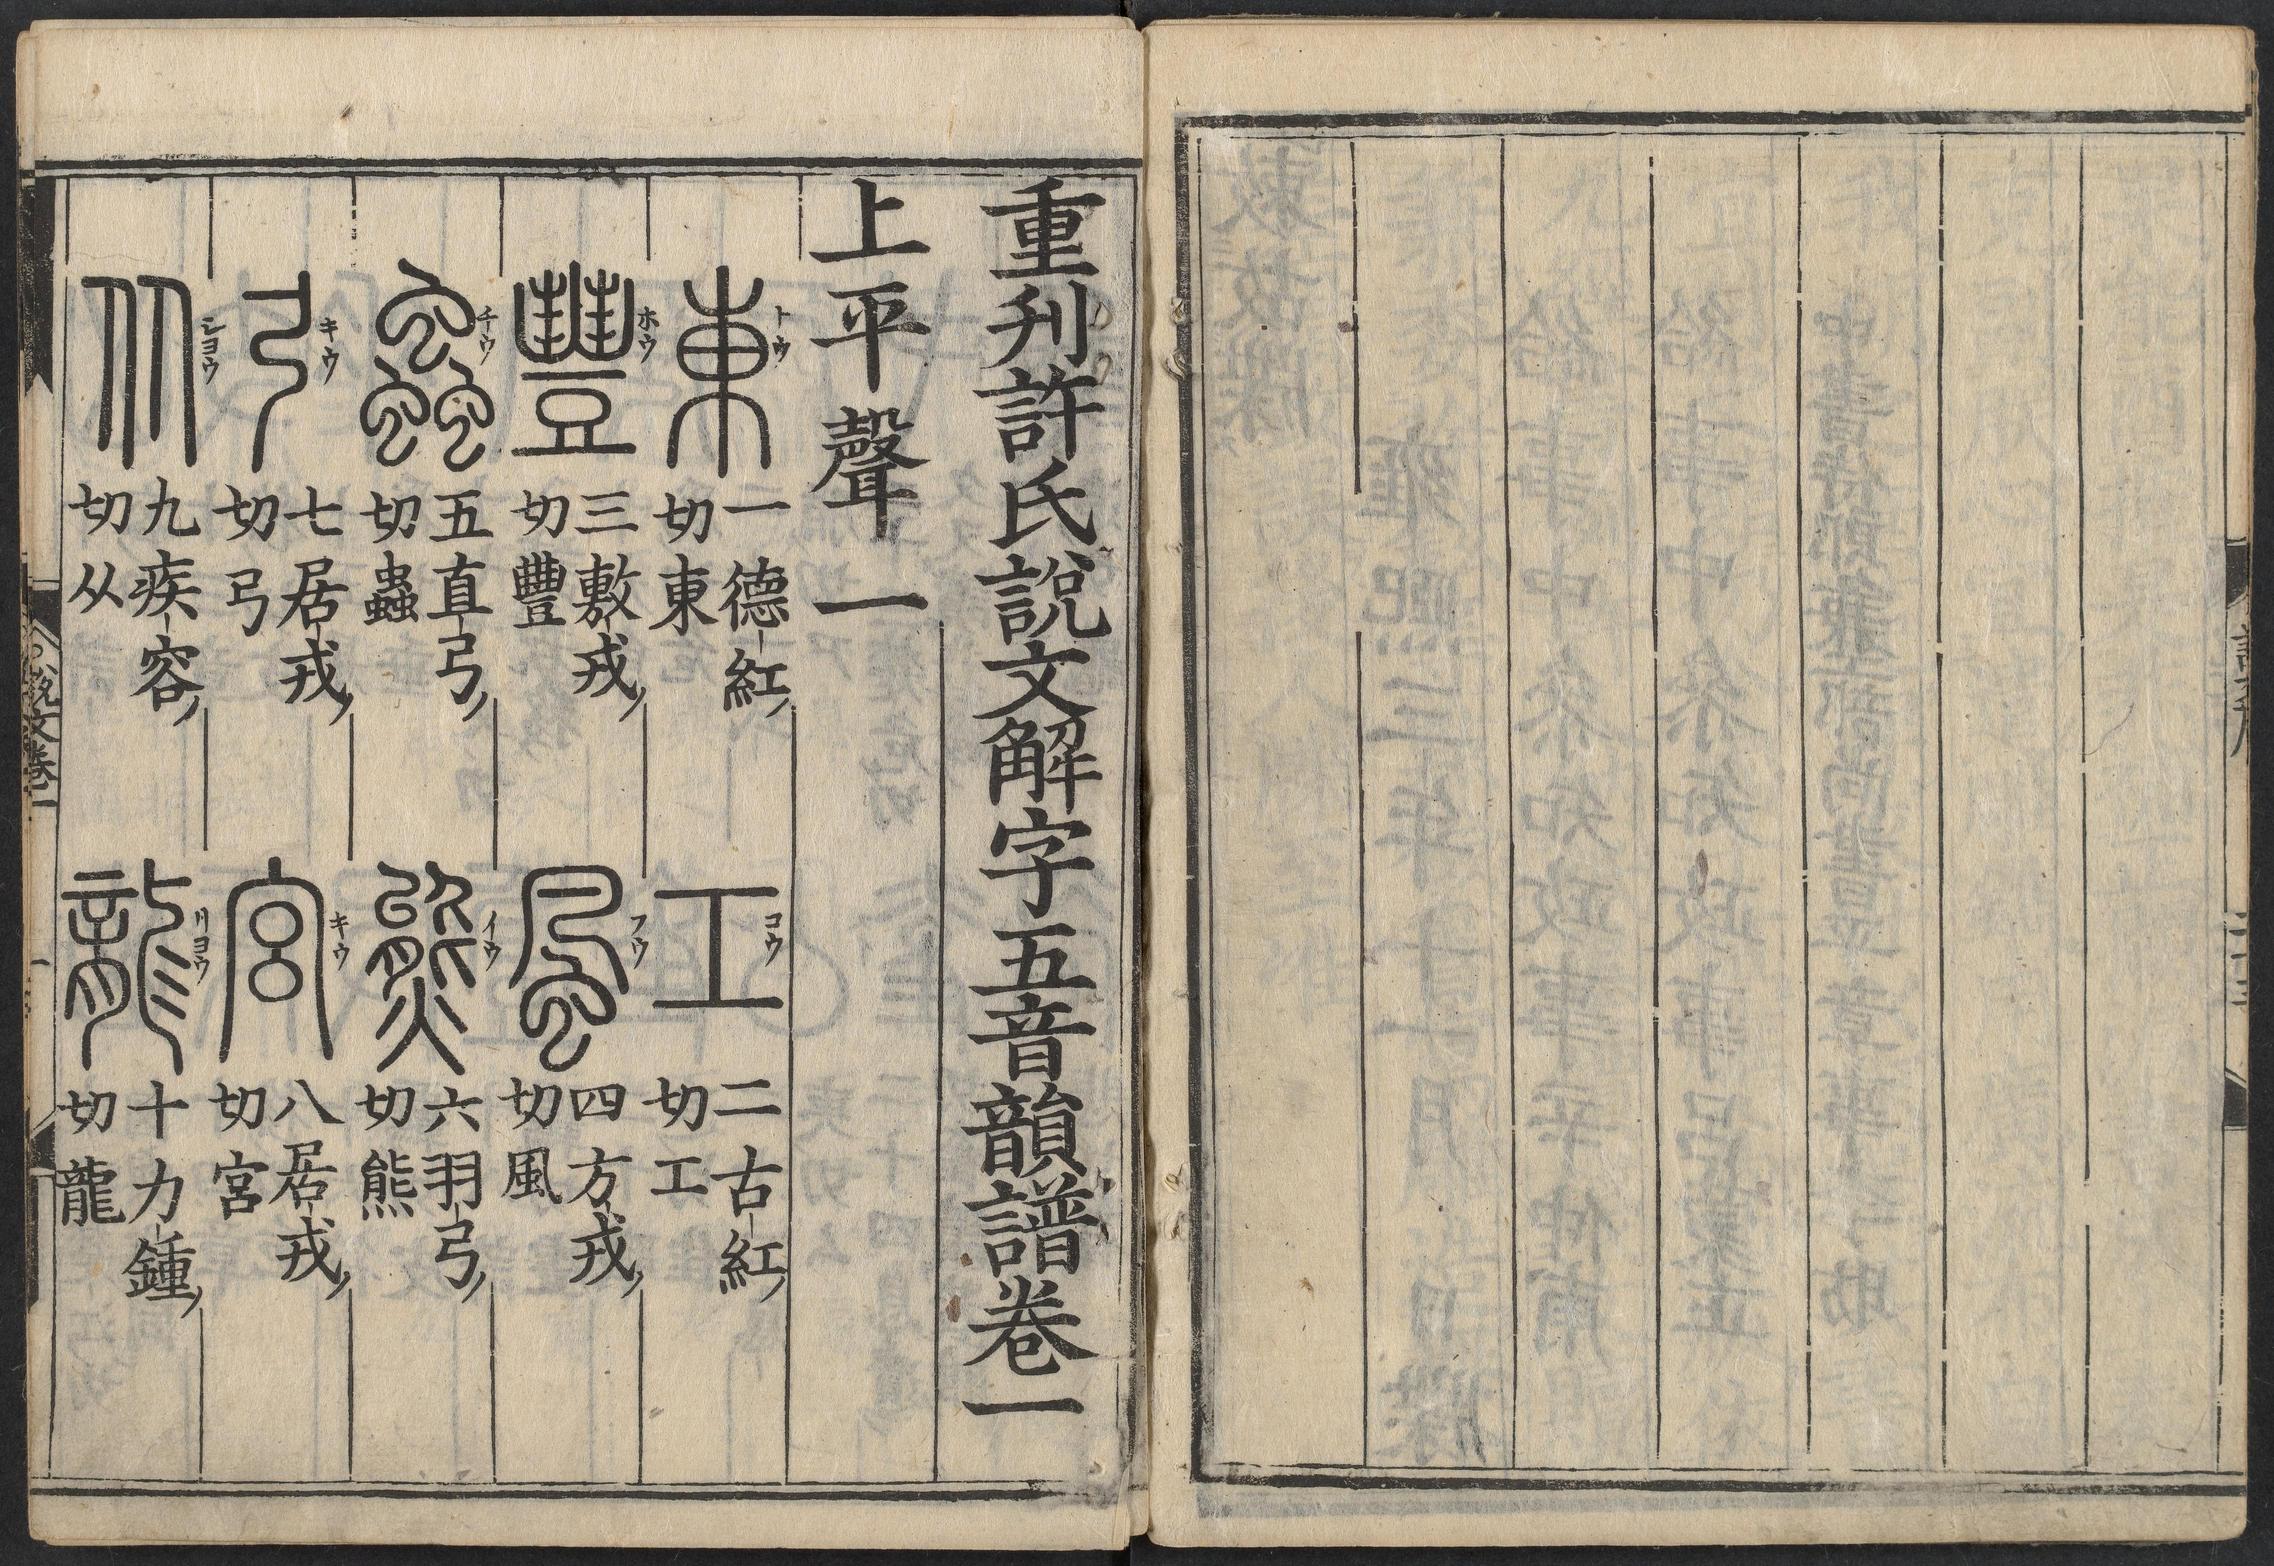 重刋許氏說文解字五音韻譜卷一
上平聲一
東 トウ 一德紅切東
工 コウ 二古紅切工
豐 ホウ 三敷戎切豐
風 フウ 四方戎切風
蟲 チウ 五直弓切蟲
熊 イウ 六羽弓切熊
弓 キウ 七居戎切弓
宮 キウ 八居戎切宮
从 シヨウ 九疾容切从
龍 リヨウ 十力鍾切龍
說文卷一
一